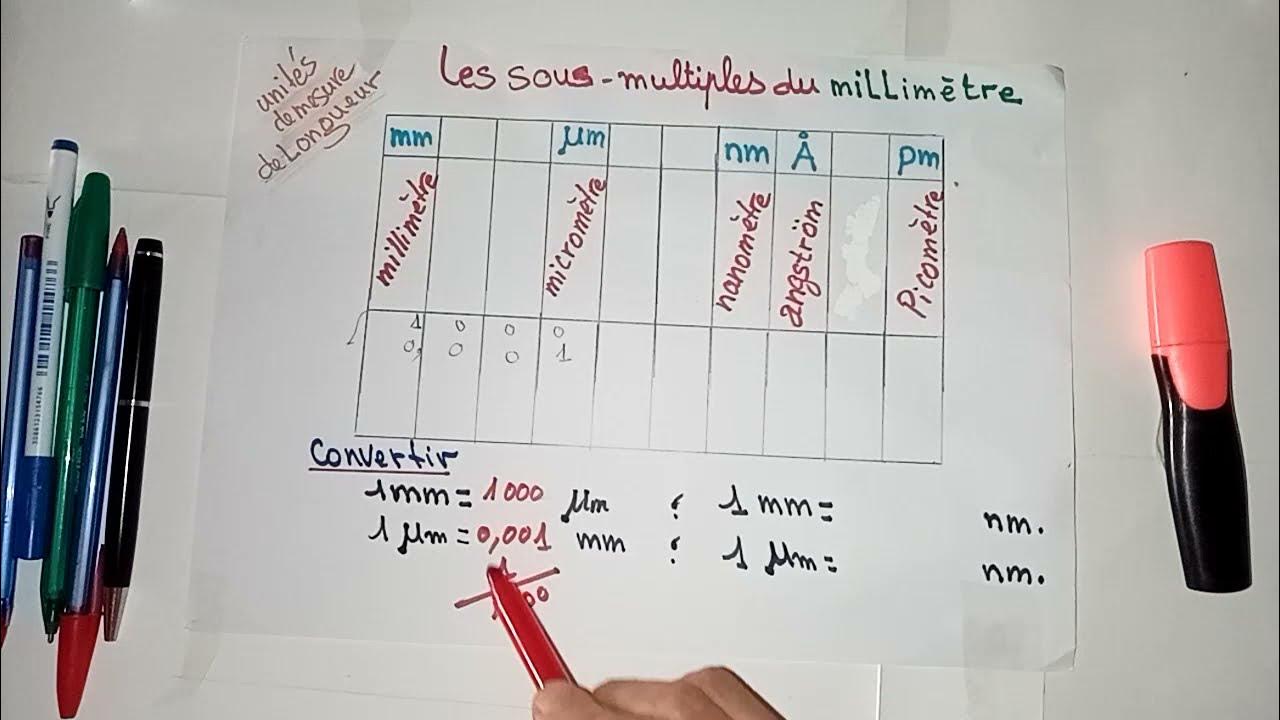 unités
de mesure
de Longueur
Les sous-multiples du millimètre
mm µm nm Å pm
millimètre micromètre nanomètre angström Picomètre
1 0 0 0
0, 0 0 1
Convertir
1 mm = 1000 µm ; 1 mm = nm.
1 µm = 0,001 mm ; 1 µm = nm.